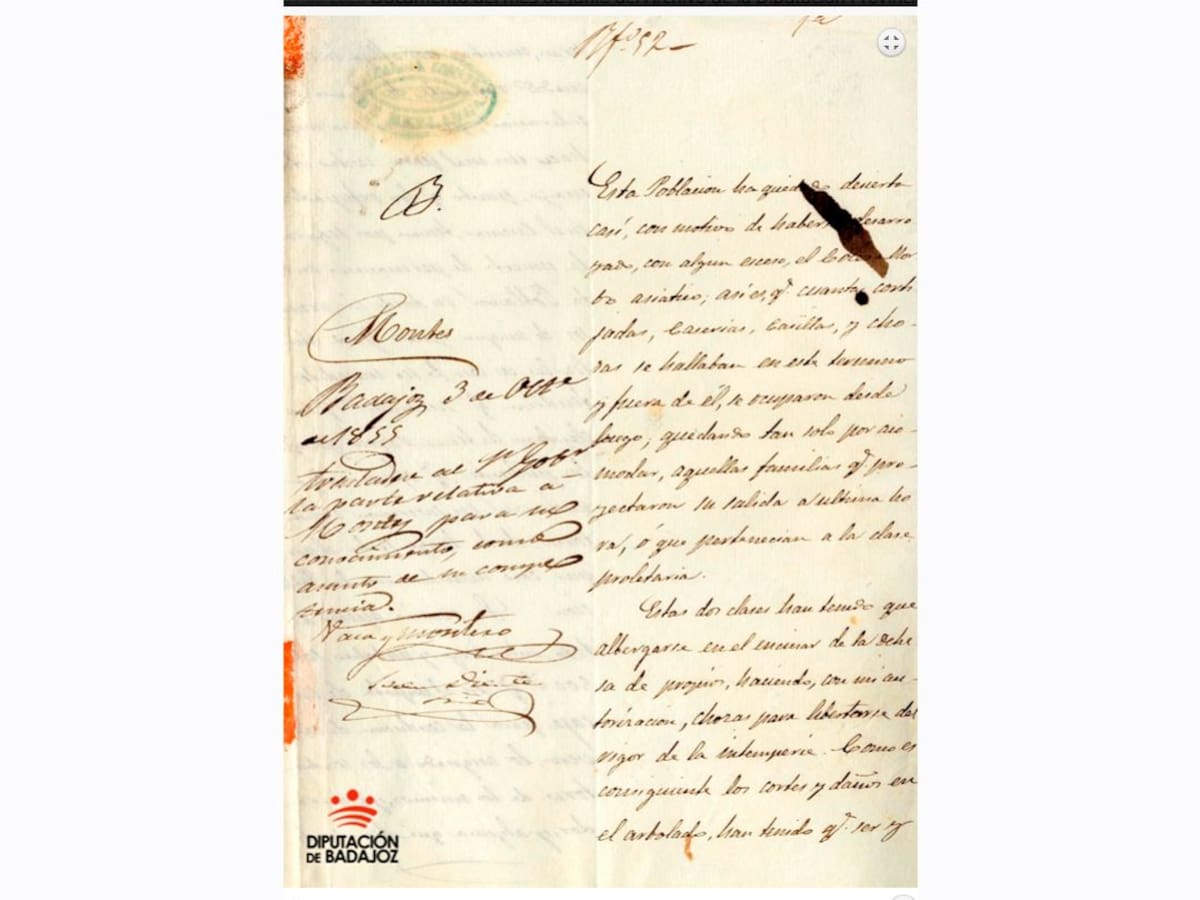 Nº 52
B.
Montes
Badajoz 3 de Oct.e
de 1855
trasladese al Sr Gobr
la parte relativa a
Montes para su
conocimiento, como
asunto de su compe
tencia.
Vaca y Montero
Esta Poblacion ha quedado desierta
casi, con motivo de haberse desarro
yado, con algun esceso, el Colera Mor
bo asiatico; asi es, q.e cuantas corti
jadas, Caserias, Casillas, y cho-
zas se hallaban en este termino
y fuera de él, se ocuparon desde
luego; quedando tan solo por aco-
modar, aquellas familias q.e pro-
yectaron su salida a ultima ho
ra, ó que pertenecian a la clase
proletaria.
Estas dos clases han tenido que
albergarse en el encinar de la dehe
sa de propios, haciendo, con mi au-
torizacion, chozas para libertarse del
rigor de la intemperie. Como es
consiguiente los cortes y daños en
el arbolado, han tenido q.e ser y
DIPUTACIÓN
DE BADAJOZ